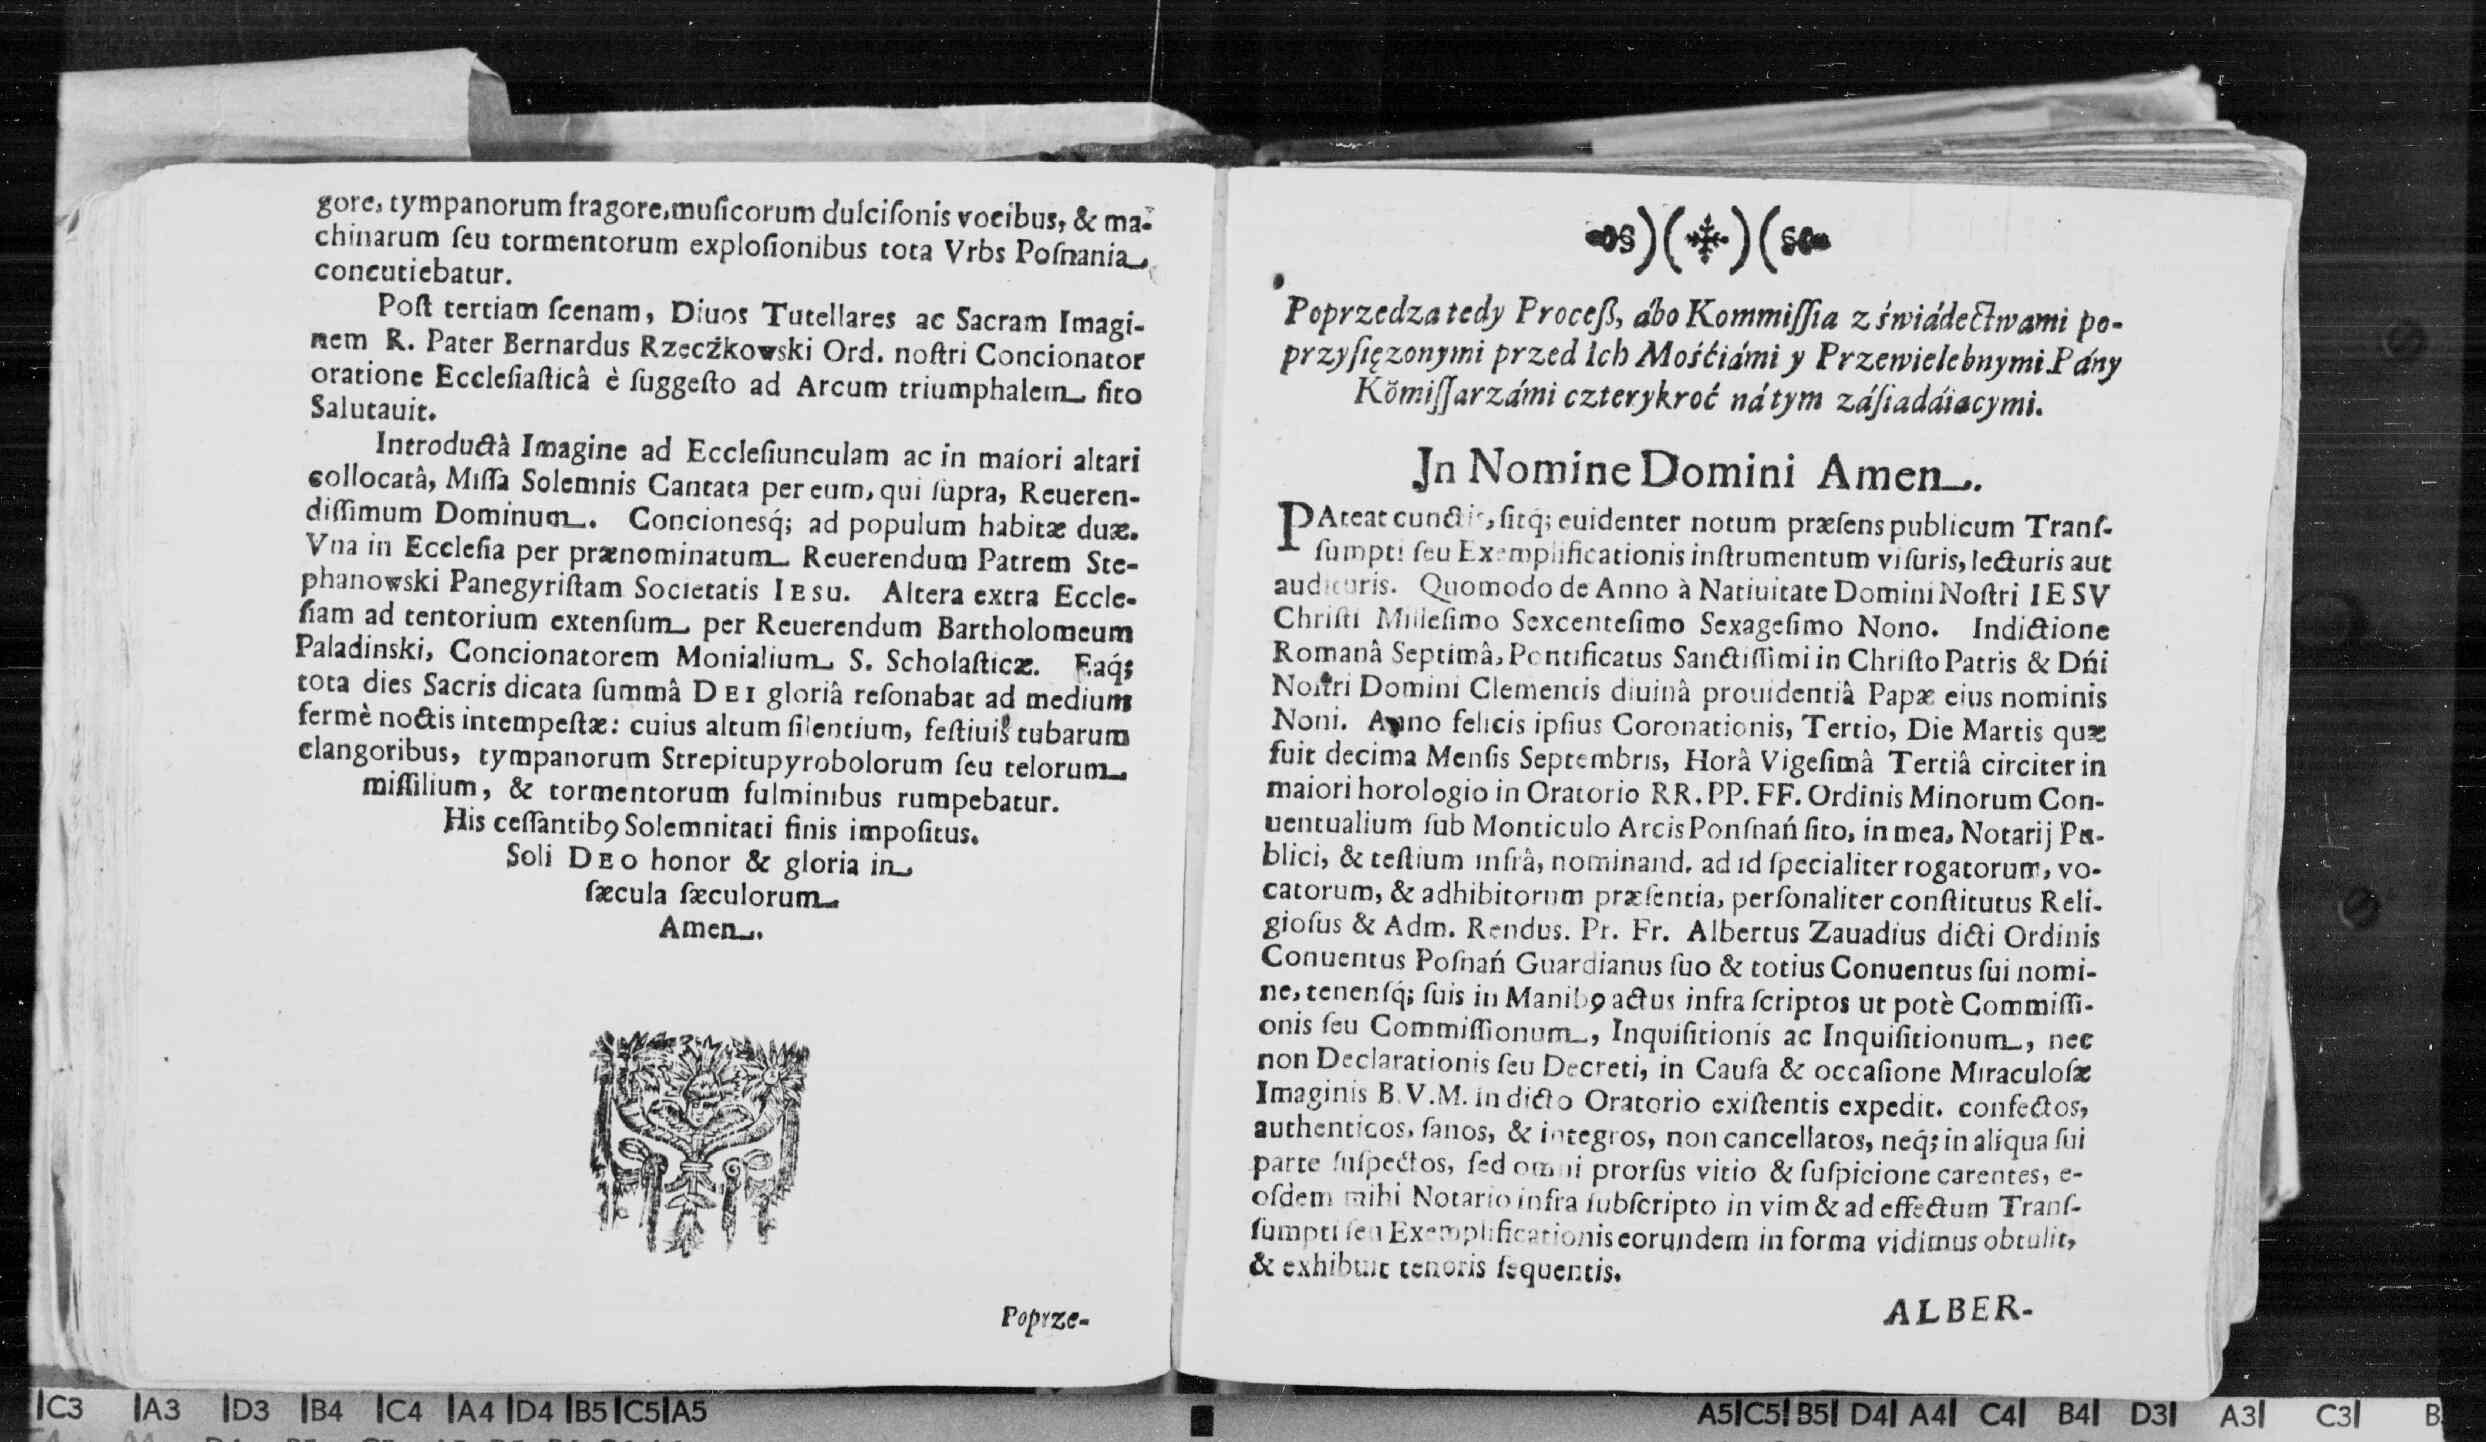 gore, tympanorum fragore, muſicorum dulciſonis vocibus, & ma-
chinarum ſeu tormentorum exploſionibus tota Vrbs Poſnania
concutiebatur.
Poſt tertiam ſcenam, Diuos Tutellares ac Sacram Imagi-
nem R. Pater Bernardus Rzeczkowski Ord. noſtri Concionator
oratione Eccleſiaſticâ è ſuggeſto ad Arcum triumphalem ſito
Salutauit.
Introductâ Imagine ad Eccleſiunculam ac in maiori altari
collocatâ, Miſſa Solemnis Cantata per eum, qui ſupra, Reueren-
diſſimum Dominum. Concionesq́; ad populum habitæ duæ.
Vna in Eccleſia per prænominatum Reuerendum Patrem Ste-
phanowski Panegyriſtam Societatis IESU. Altera extra Eccle-
ſiam ad tentorium extenſum per Reuerendum Bartholomeum
Paladinski, Concionatorem Monialium S. Scholaſticæ. Eaq́;
tota dies Sacris dicata ſummâ DEI gloriâ reſonabat ad medium
fermè noctis intempeſtæ: cuius altum ſilentium, feſtiuis tubarum
clangoribus, tympanorum Strepitupyrobolorum ſeu telorum
miſſilium, & tormentorum fulminibus rumpebatur.
His ceſſantibꝰ Solemnitati finis impoſitus.
Soli DEO honor & gloria in
ſæcula ſæculorum
Amen.
Poprze-
Poprzedza tedy Proceß, ábo Kommiſſia z świádectwami po-
przyſięzonymi przed Ich Mośćiámi y Przewielebnymi Pány
Kõmiſſarzámi czterykroć ná tym záſiadáiacymi.
Jn Nomine Domini Amen.
PAteat cunctis, ſitq́; euidenter notum præſens publicum Tranſ-
ſumpti ſeu Exemplificationis inſtrumentum viſuris, lecturis aut
audituris. Quomodo de Anno à Natiuitate Domini Noſtri IESV
Chriſti Milleſimo Sexcenteſimo Sexageſimo Nono. Indictione
Romanâ Septimâ, Pontificatus Sanctiſſimi in Chriſto Patris & Dńi
Noſtri Domini Clementis diuinâ prouidentiâ Papæ eius nominis
Noni. Anno felicis ipſius Coronationis, Tertio, Die Martis quæ
fuit decima Menſis Septembris, Horâ Vigeſimâ Tertiâ circiter in
maiori horologio in Oratorio RR. PP. FF. Ordinis Minorum Con-
uentualium ſub Monticulo Arcis Ponſnań ſito, in mea, Notarij Pu-
blici, & teſtium infrâ, nominand. ad id ſpecialiter rogatorum, vo-
catorum, & adhibitorum præſentia, perſonaliter conſtitutus Reli-
gioſus & Adm. Rendus. Pr. Fr. Albertus Zauadius dicti Ordinis
Conuentus Poſnań Guardianus ſuo & totius Conuentus ſui nomi-
ne, tenenſq́; ſuis in Manibꝰ actus infra ſcriptos ut potè Commiſſi-
onis ſeu Commiſſionum, Inquiſitionis ac Inquiſitionum, nec
non Declarationis ſeu Decreti, in Cauſa & occaſione Miraculoſæ
Imaginis B. V. M. in dicto Oratorio exiſtentis expedit. confectos,
authenticos, ſanos, & integros, non cancellatos, neq́; in aliqua ſui
parte ſuſpectos, ſed omni prorſus vitio & ſuſpicione carentes, e-
oſdem mihi Notario infra ſubſcripto in vim & ad effectum Tranſ-
ſumpti ſeu Exemplificationis eorundem in forma vidimus obtulit,
& exhibuit tenoris ſequentis.
ALBER-
C3 A3 D3 B4 C4 A4 D4 B5 C5 A5
A5 C5 B5 D4 A4 C4 B4 D3 A3 C3 B